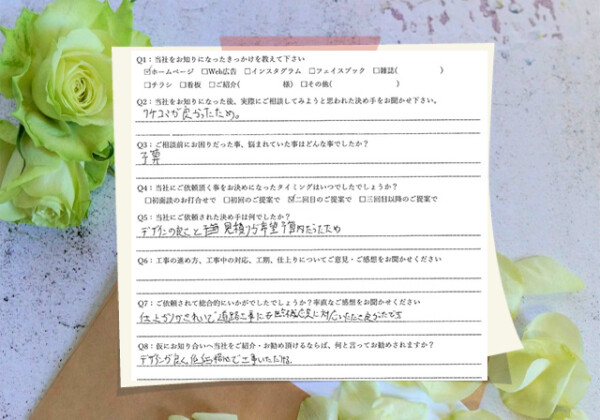 Q1：当社をお知りになったきっかけを教えて下さい
☑ホームページ □Web広告 □インスタグラム □フェイスブック □雑誌( )
□チラシ □看板 □ご紹介( 様) □その他( )
Q2：当社をお知りになった後、実際にご相談してみようと思われた決め手をお聞かせ下さい。
クチコミが良かったため。
Q3：ご相談前にお困りだった事、悩まれていた事はどんな事でしたか？
予算
Q4：当社にご依頼頂く事をお決めになったタイミングはいつでしたでしょうか？
□初面談のお打合せで □初回のご提案で ☑二回目のご提案で □三回目以降のご提案で
Q5：当社にご依頼された決め手は何でしたか？
デザインの良さと 見積りが希望予算内だったため
Q6：工事の進め方、工事中の対応、工期、仕上りについてご意見・ご感想をお聞かせください
Q7：ご依頼されて総合的にいかがでしたでしょうか？率直なご感想をお聞かせください
仕上がりがきれいで、追加工事にも 対応いただき良かったです
Q8：仮にお知り合いへ当社をご紹介・お勧め頂けるならば、何と言ってお勧めされますか？
デザインが良く、低価格で工事いただける。